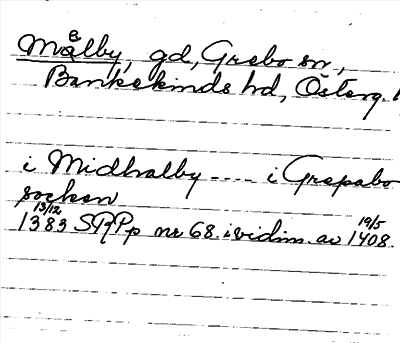 Mälby, gd, Grebo sn,
Bankekinds hd, Österg. l
i Midhalby .... i Grepabo
socken
13/12 19/5
1383 SRPp nr 68 i vidim. av 1408.